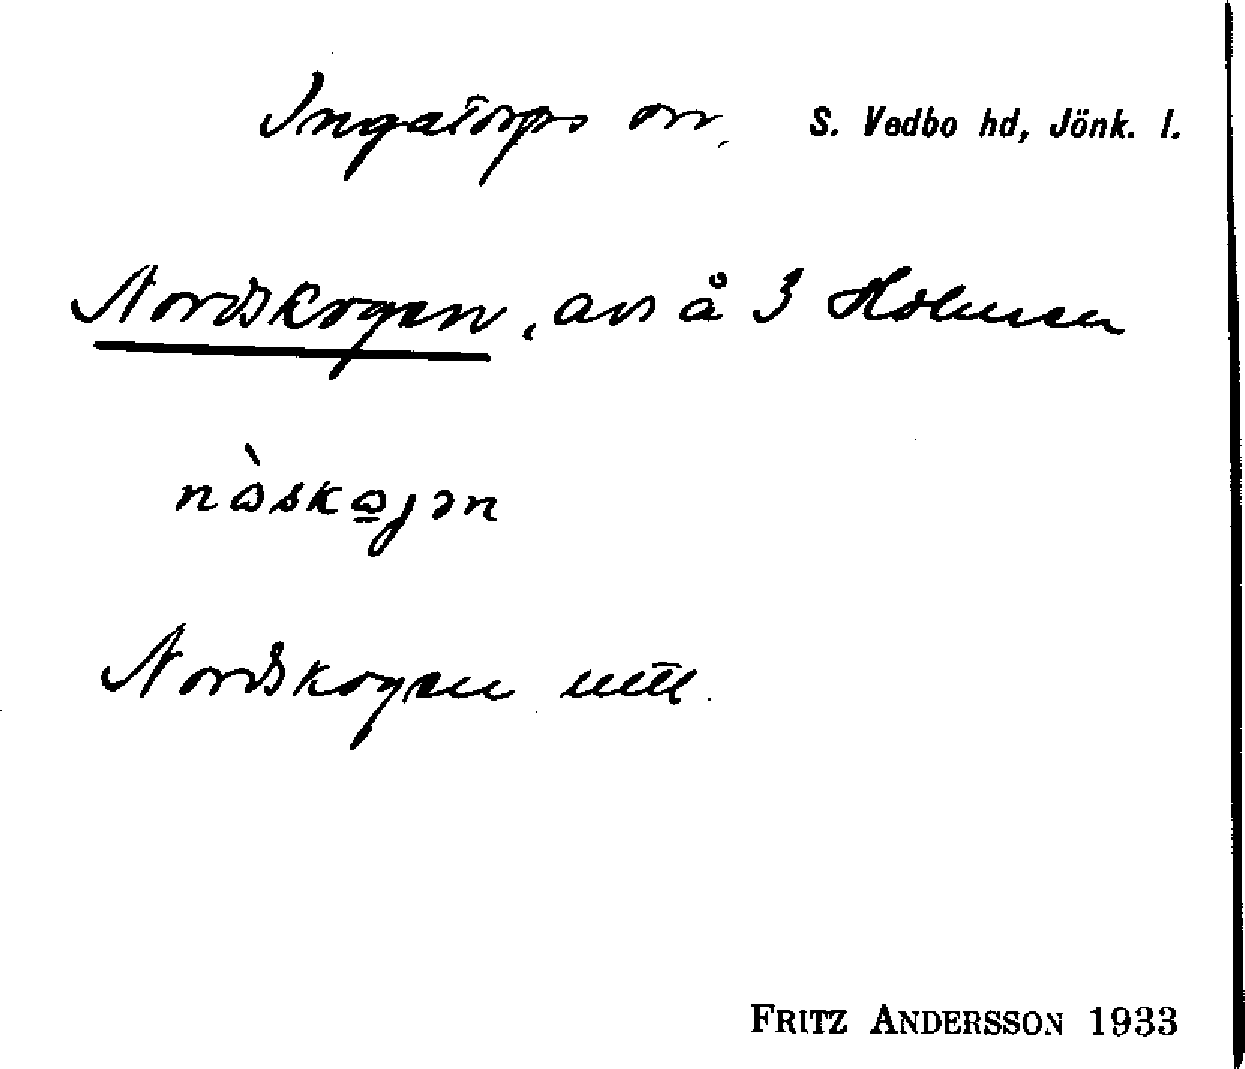 Ingatorps sn, S. Vedbo hd, Jönk. l.
Nordskogen, avs å 3 Holmsen
nàskajən
Nordskogen uttl.
FRITZ ANDERSSON 1933